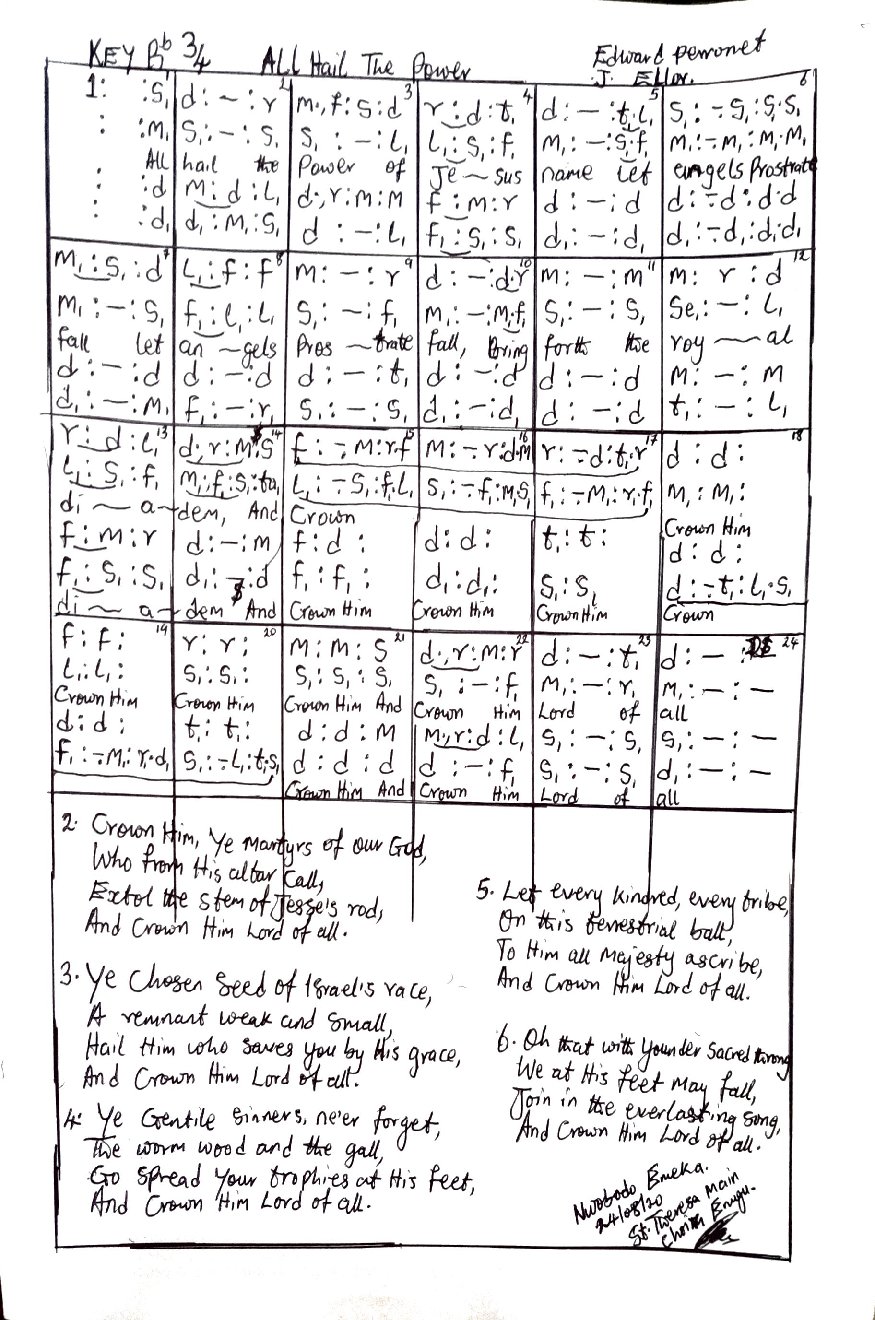 KEY Bb 3/4 All Hail The Power Edward Perronet
J. Ellor.
1 2 3 4 5 6
1: :S, d:–:r m.,f:S:d r:d:t, d:–:t,.l, S,:–S,:S,.S,
: :m, S,:–:S, S,:–:L, L,:S,:f, m,:–:S,.f, m,:–m,:m,.m,
All hail the Power of Je~sus name let angels Prostrate
: :d m:d:L, d.,r:m:m f:m:r d:–:d d:–d:d.d
: :d, d,:m,:S, d:–:L, f,:S,:S, d,:–:d, d,:–d,:d,.d,
7 8 9 10 11 12
m,:S,:d L,:f:f m:–:r d:–:d.r m:–:m m:r:d
m,:–:S, f,:l,:L, S,:–:f, m,:–:m,.f, S,:–:S, Se,:–:L,
fall let an~gels Pros~trate fall, Bring forth the roy~al
d:–:d d:–:d d:–:t, d:–:d d:–:d m:–:m
d,:–:m, f,:–:r, S,:–:S, d,:–:d, d:–:d t,:–:L,
13 14 15 16 17 18
r:d:L, d.,r:m:S f:–m:r.f m:–r:d.m r:–d:t,.r d:d:
L,:S,:f, m,.,f,:S,:ta, L,:–S,:f,.L, S,:–f,:m,.S, f,:–m,:r,.f, m,:m,:
di~a~dem, And Crown Crown Him
f:m:r d:–:m f:d: d:d: t,:t: d:d:
f,:S,:S, d,:–:d f,:f,: d,:d,: S,:S, d:–t,:L,.S,
di~a~dem And Crown Him Crown Him Crown Him Crown
19 20 21 22 23 24
f:f: r:r: m:m:S d.,r:m:r d:–:t, d:–: DS
L,:L,: S,:S,: S,:S,:S, S,:–:f, m,:–:r, m,:–:–
Crown Him Crown Him Crown Him And Crown Him Lord of all
d:d: t,:t,: d:d:m m.,r:d:L, S,:–:S, S,:–:–
f,:–m,:r,.d, S,:–L,:t,.S, d:d:d d:–:f, S,:–:S, d,:–:–
Crown Him And Crown Him Lord of all
2. Crown Him, Ye Martyrs of our God,
Who from His altar Call,
Extol the stem of Jesse's rod,
And Crown Him Lord of all.
3. Ye Chosen Seed of Israel's race,
A remnant weak and small,
Hail Him who saves you by His grace,
And Crown Him Lord of all.
4. Ye Gentile Sinners, ne'er forget,
The worm wood and the gall,
Go Spread your trophies at His feet,
And Crown Him Lord of all.
5. Let every kindred, every tribe,
On this terrestrial ball,
To Him all Majesty ascribe,
And Crown Him Lord of all.
6. Oh that with Younder Sacred throng
We at His feet May fall,
Join in the everlasting song,
And Crown Him Lord of all.
Nwobodo Emeka.
24/08/20
St. Theresa Main
Choir Enugu.